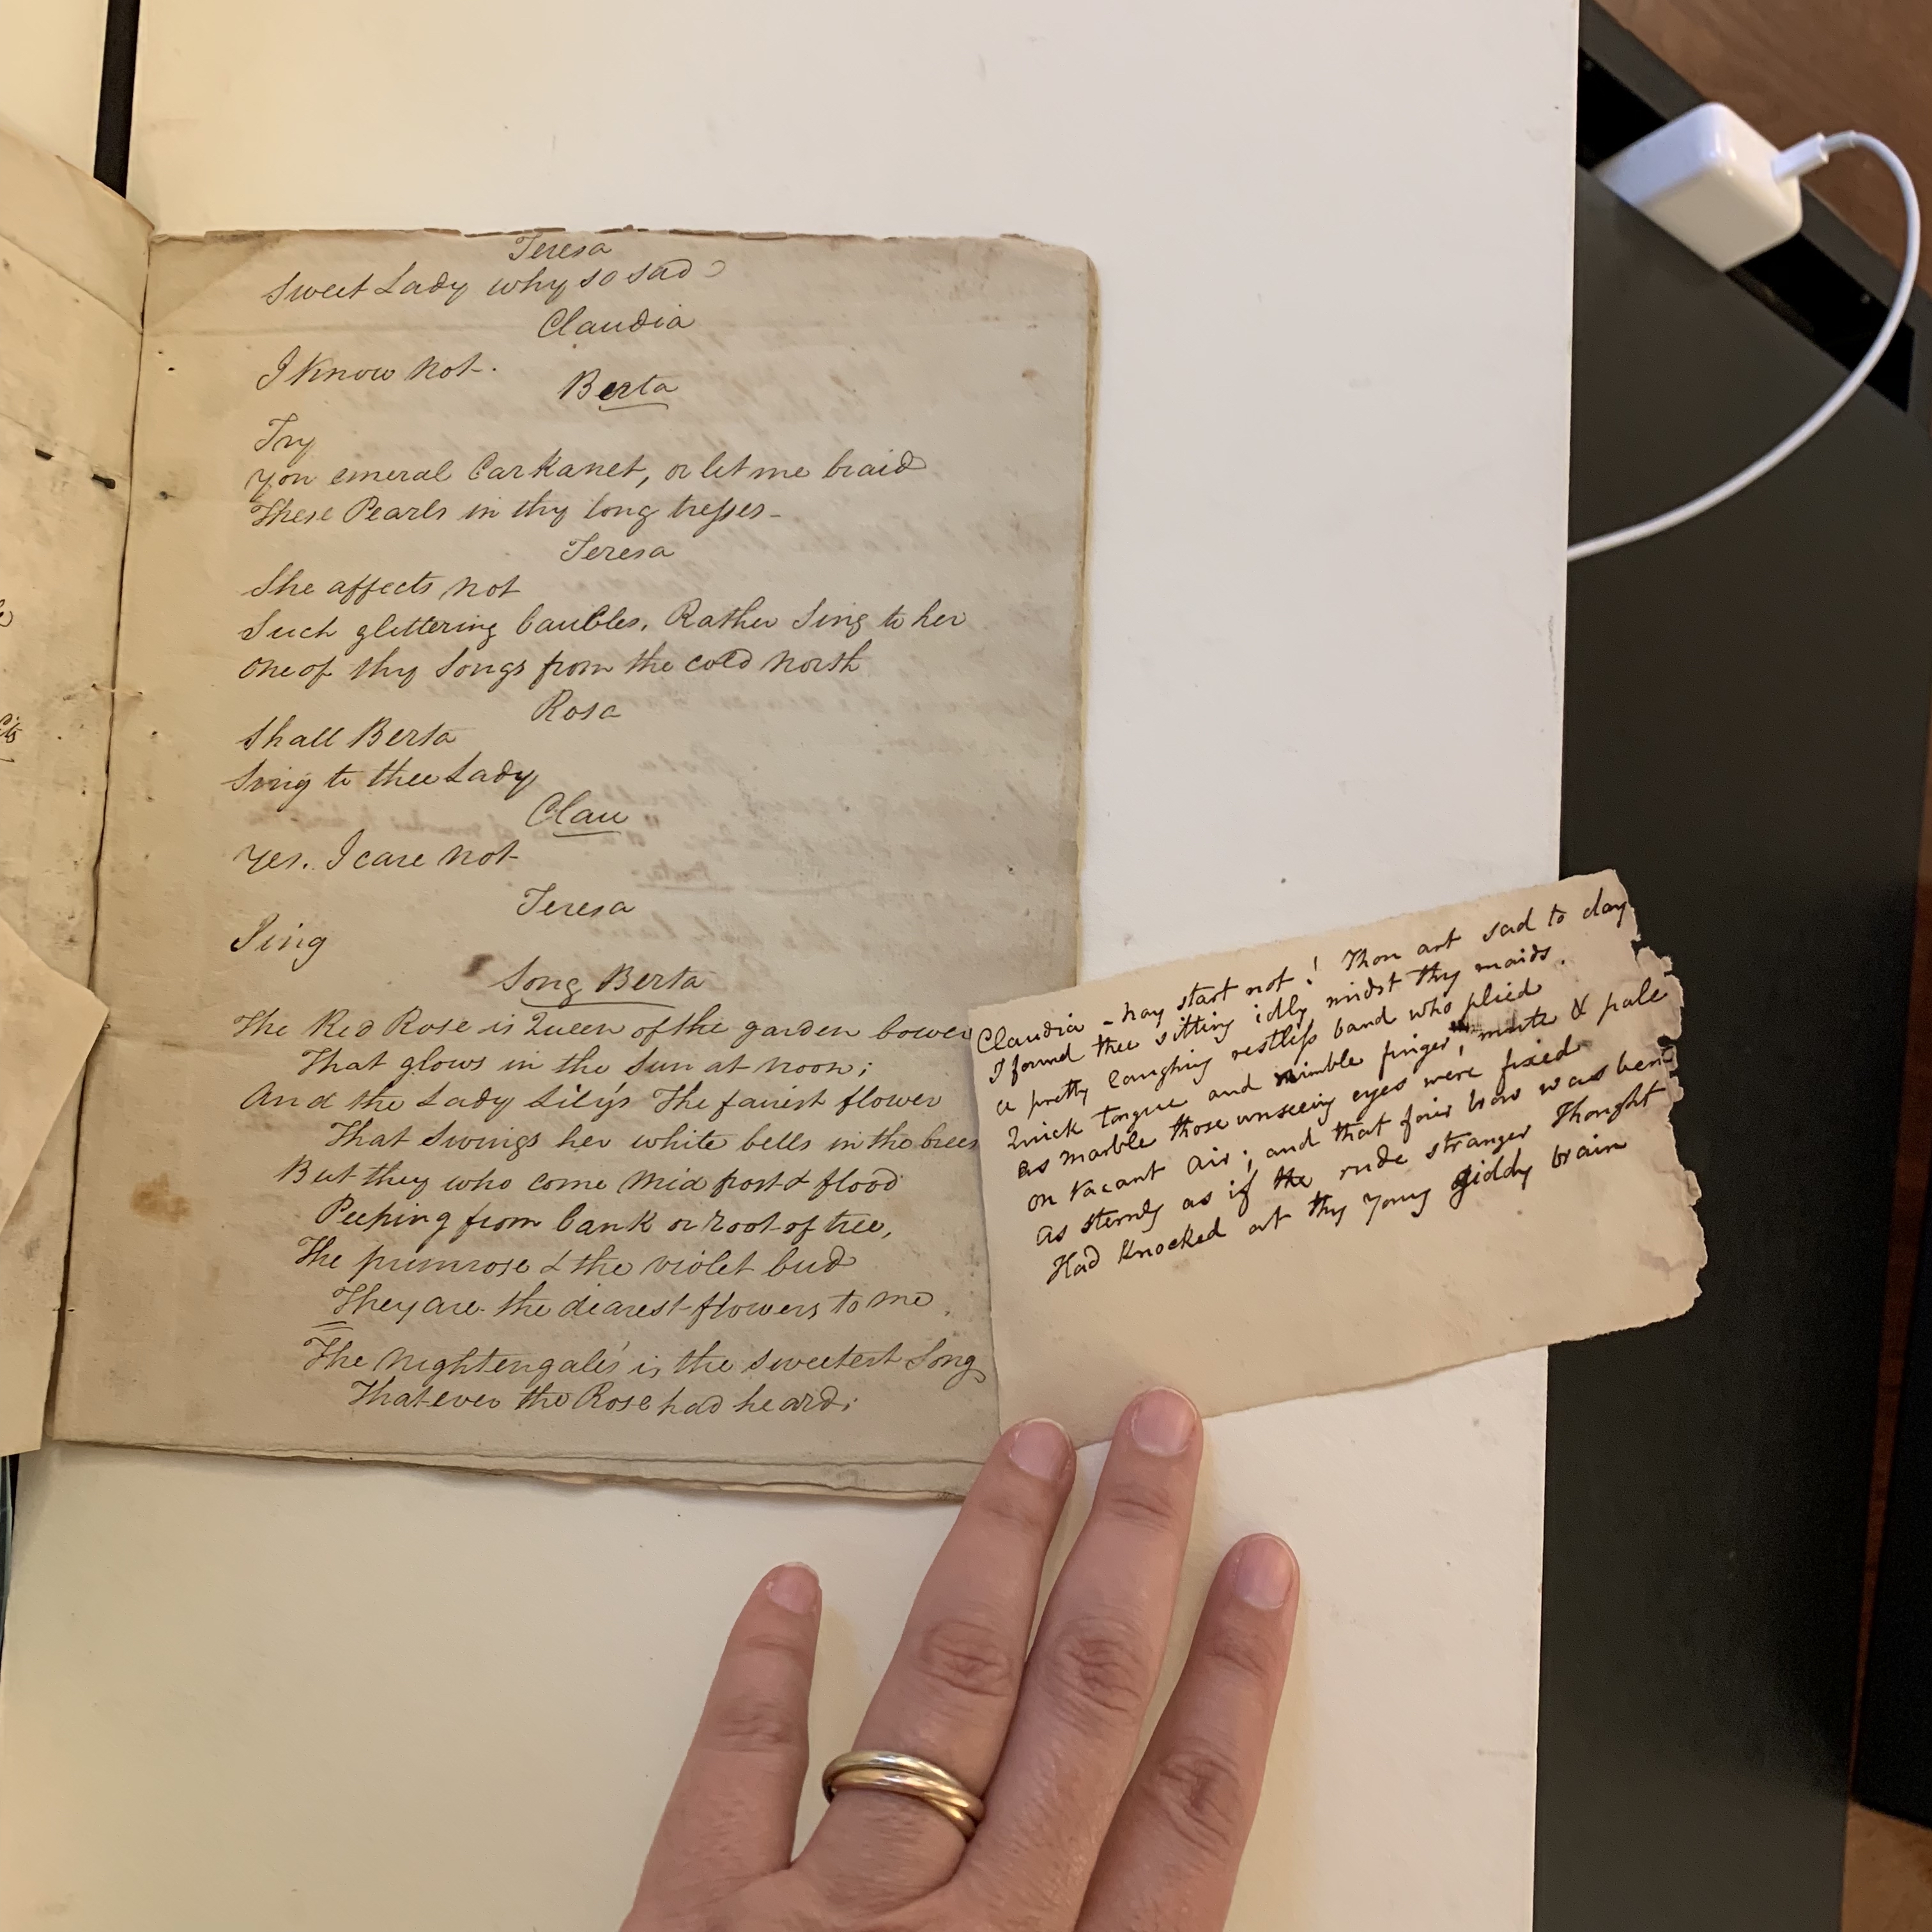 Teresa
Sweet Lady why so sad?
Claudia
I know not.
Berta
Try
yon emeral Carkanet, or let me braid
These Pearls in thy long tresses -
Teresa
She affects not
Such glittering baubles. Rather Sing to her
One of thy Songs from the cold North
Rosa
Shall Berta
Sing to thee Lady
Clau
Yes. I care not
Teresa
Sing
Song Berta
The Red Rose is Queen of the garden bower
That glows in the Sun at noon;
And the Lady Lily's The fairest flower
That Swings her white bells in the
But they who come mid frost & flood
Peeping from bank or root of tree,
The primrose & the violet bud
They are the dearest flowers to me.
The Nightengale's is the sweetest Song
That ever the Rose had heard;
Claudia - Nay start not! Thou art sad to day
I found thee sitting idly midst thy maids.
a pretty laughing restless band who plied
Quick tongue and nimble finger, mute & pale
as marble those unseeing eyes were fixed
on Vacant Air; and that fair brow was bent
as sternly as if the rude stranger Thought
Had Knocked at thy young giddy brain